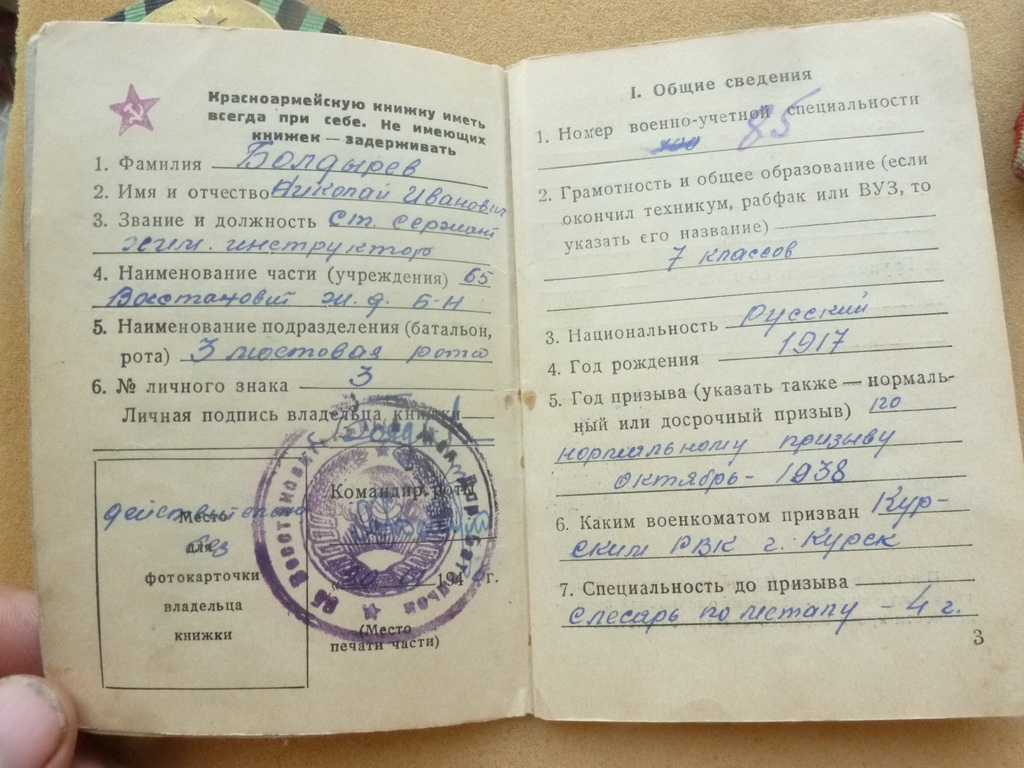 Красноармейскую книжку иметь
всегда при себе. Не имеющих
книжек — задерживать
1. Фамилия Болдырев
2. Имя и отчество Николай Иванович
3. Звание и должность Ст. сержант
хим. инструктор
4. Наименование части (учреждения) 65
Восстановит ж. д. б-н
5. Наименование подразделения (батальон,
рота) 3 мостовая рота
6. № личного знака 3
Личная подпись владельца книжки
Командир роты
действительно
Место
без
для
фотокарточки
владельца
книжки
194 г.
(Место
печати части)
I. Общие сведения
1. Номер военно-учетной специальности
85
2. Грамотность и общее образование (если
окончил техникум, рабфак или ВУЗ, то
указать его название)
7 классов
3. Национальность русский
4. Год рождения 1917
5. Год призыва (указать также — нормаль-
ный или досрочный призыв) по
нормальному призыву
октябрь - 1938
6. Каким военкоматом призван Кур-
ским РВК г. Курск
7. Специальность до призыва
слесарь по металу - 4 г.
3